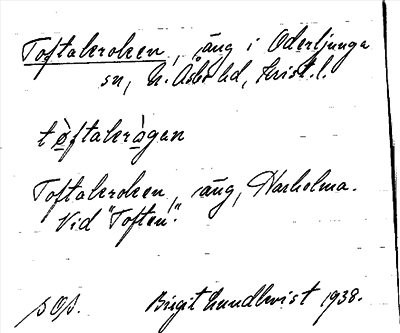 Toftakroken, äng i Oderljunga
sn, N. Åsbo hd, Krist. l.
tø̀ftakrògen
Toftakroken, äng, Harholma.
Vid "Toften".
SOS. Birgit Lundkvist 1938.